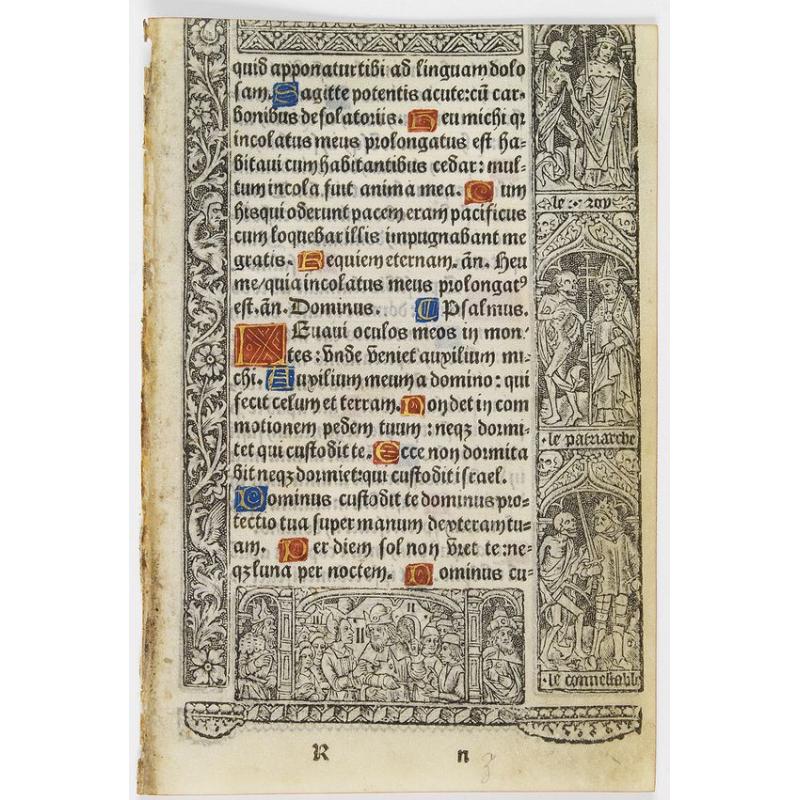 quid apponatur tibi ad linguam dolo
sam. Sagitte potentis acute: cū car-
bonibus desolatoriis. Heu michi qr
incolatus meus prolongatus est ha-
bitaui cum habitantibus cedar: mul-
tum incola fuit anima mea. Cum
his qui oderunt pacem eram pacificus
cum loquebar illis impugnabant me
gratis. Requiem eternam. añ. Heu
me/quia incolatus meus prolongatꝰ
est. añ. Dominus. Psalmus.
Leuaui oculos meos in mon-
tes: vnde veniet auxilium mi-
chi. Auxilium meum a domino: qui
fecit celum et terram. Non det in com
motionem pedem tuum: neqꝫ dormi-
tet qui custodit te. Ecce non dormita
bit neqꝫ dormiet: qui custodit israel.
Dominus custodit te dominus pro-
tectio tua super manum dexteram tu-
am. Per diem sol non vret te: ne-
qꝫ luna per noctem. Dominus cu-
le roy
le patriarche
le connestabl
R n